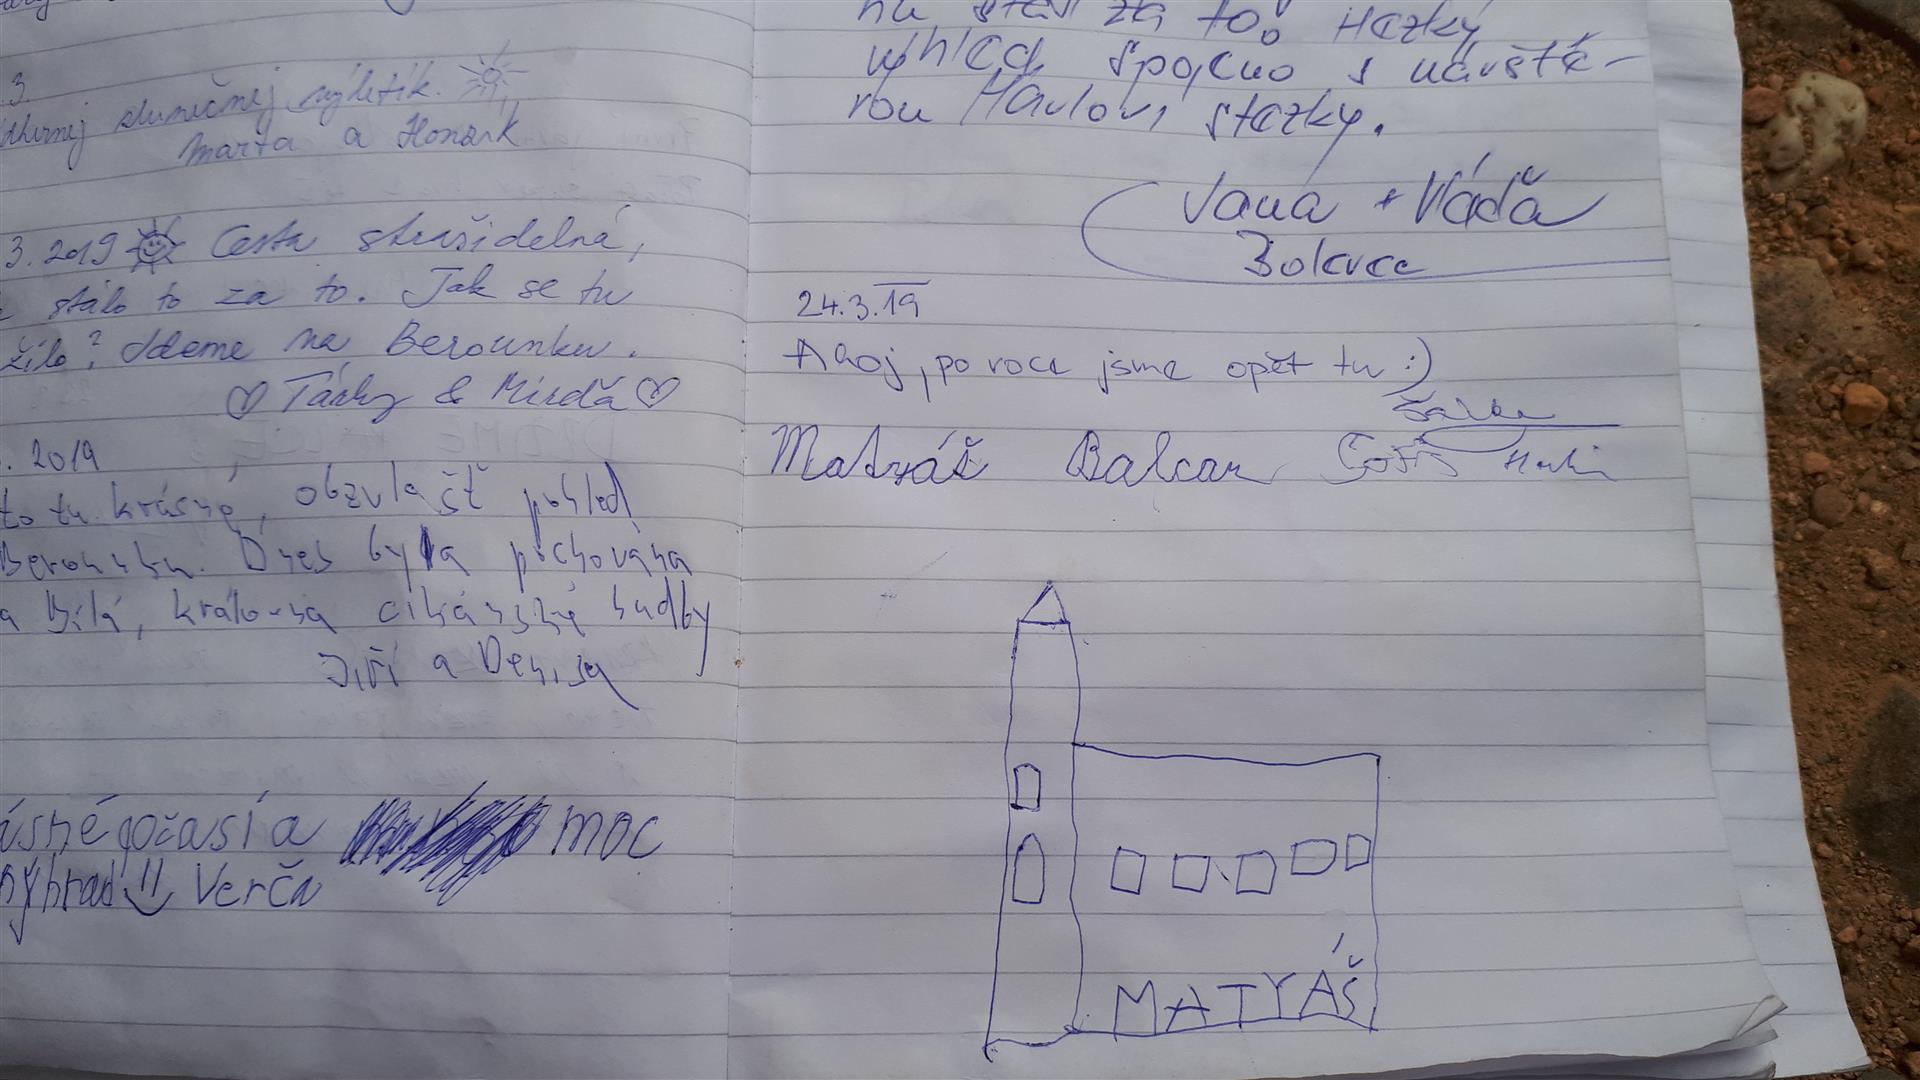 3.
slunečnej výletík.
Marta a Honzík
3. 2019 Cesta strašidelná,
stálo to za to. Jak se tu
žilo? Jdeme na Berounku.
& Mirďa
. 2019
to tu krásné, obzvlášť pohled
Berounku. Dnes byla pochována
a Bílá, královna cikánské hudby
Jiří a Denisa
ásné počasí a moc
ný hrad Verča
na stav za to. Hezký
výhled spojeno s návště-
vou Havlovi stezky.
Jana + Váďa
Bolevec
24.3.19
Ahoj, po roce jsme opět tu :)
Matyáš Balcar
MATYÁŠ